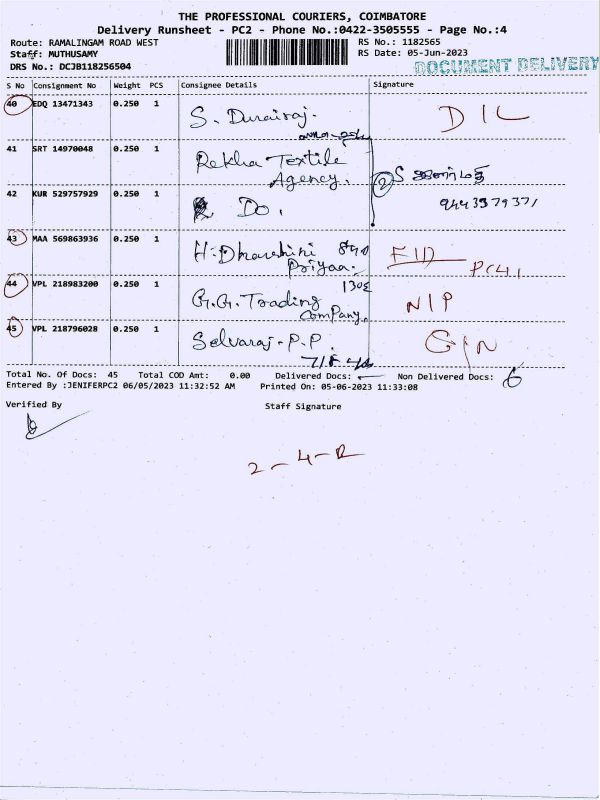 THE PROFESSIONAL COURIERS, COIMBATORE
Delivery Runsheet - PC2 - Phone No.:0422-3505555 - Page No.:4
Route: RAMALINGAM ROAD WEST
RS No.: 1182565
Staff: MUTHUSAMY
RS Date: 05-Jun-2023
DRS No.: DCJB118256504
DOCUMENT DELIVERY
S No Consignment No Weight PCS Consignee Details Signature
40 EDQ 13471343 0.250 1 S. Durairaj. D/L
41 SRT 14970048 0.250 1 Rekha Textile
Agency.
42 KUR 529757929 0.250 1 Do.
43 MAA 569863936 0.250 1 H. Dharshini
Priyaa.
44 VPL 218983200 0.250 1 G.G. Trading
Company. N/P
45 VPL 218796028 0.250 1 Selvaraj-P.P. G/N
Total No. Of Docs: 45 Total COD Amt: 0.00 Delivered Docs: Non Delivered Docs: 6
Entered By :JENIFERPC2 06/05/2023 11:32:52 AM Printed On: 05-06-2023 11:33:08
Verified By Staff Signature
2-4-R